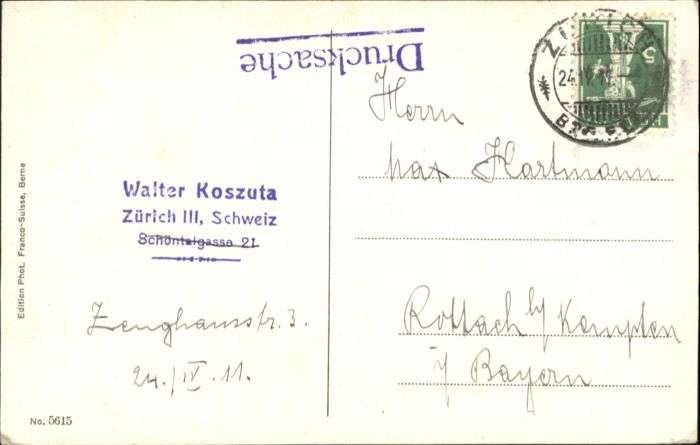 Drucksache
Walter Koszuta
Zürich III, Schweiz
Schöntalgasse 21
Zeughausstr. 3.
24./IV. 11.
Herrn
Max Hartmann
Rottach b/ Kempten
i/ Bayern
5
24.IV.
Edition Phot. Franco-Suisse, Berne
No. 5615